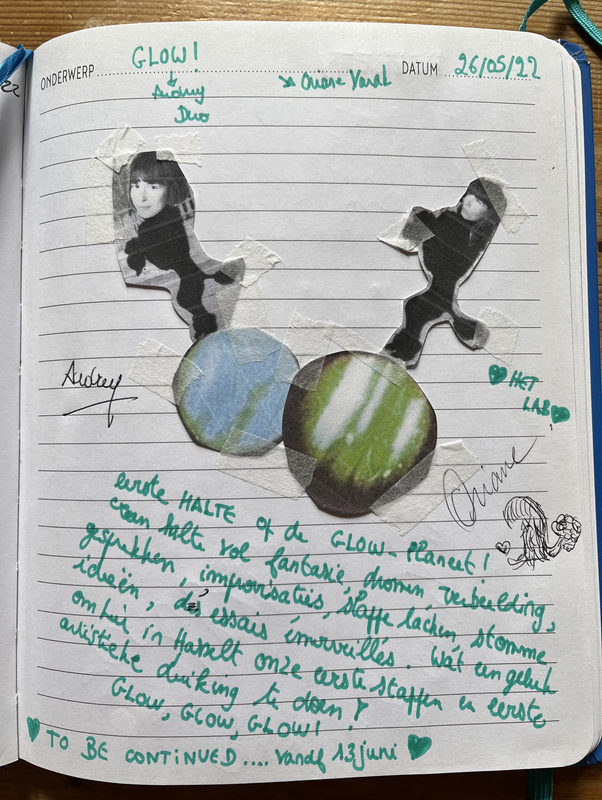 ONDERWERP GLOW! DATUM 26/05/22
Audrey Oriane Varak
Duo
Audrey
HET
LAB
Oriane
eerste HALTE op de GLOW-Planeet!
een halte vol fantasie, dromen, verbeelding,
gesprekken, improvisaties, slappe lachen, stomme
ideeën, des essais émerveillés. Wat een geluk
om hier in Hasselt onze eerste stappen en eerste
artistieke duiking te doen!
GLOW, GLOW, GLOW!
TO BE CONTINUED .... vanaf 13 juni